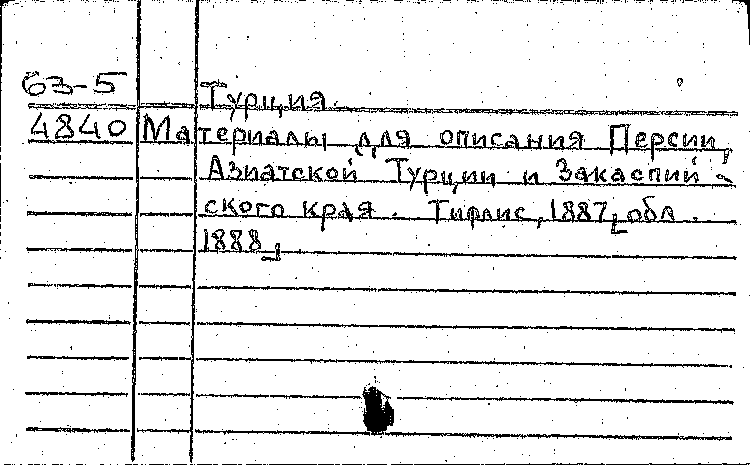 63-5
Турция.
4840 Материалы для описания Персии,
Азиатской Турции и Закаспий-
ского края. Тифлис, 1887, [обл.
1888]